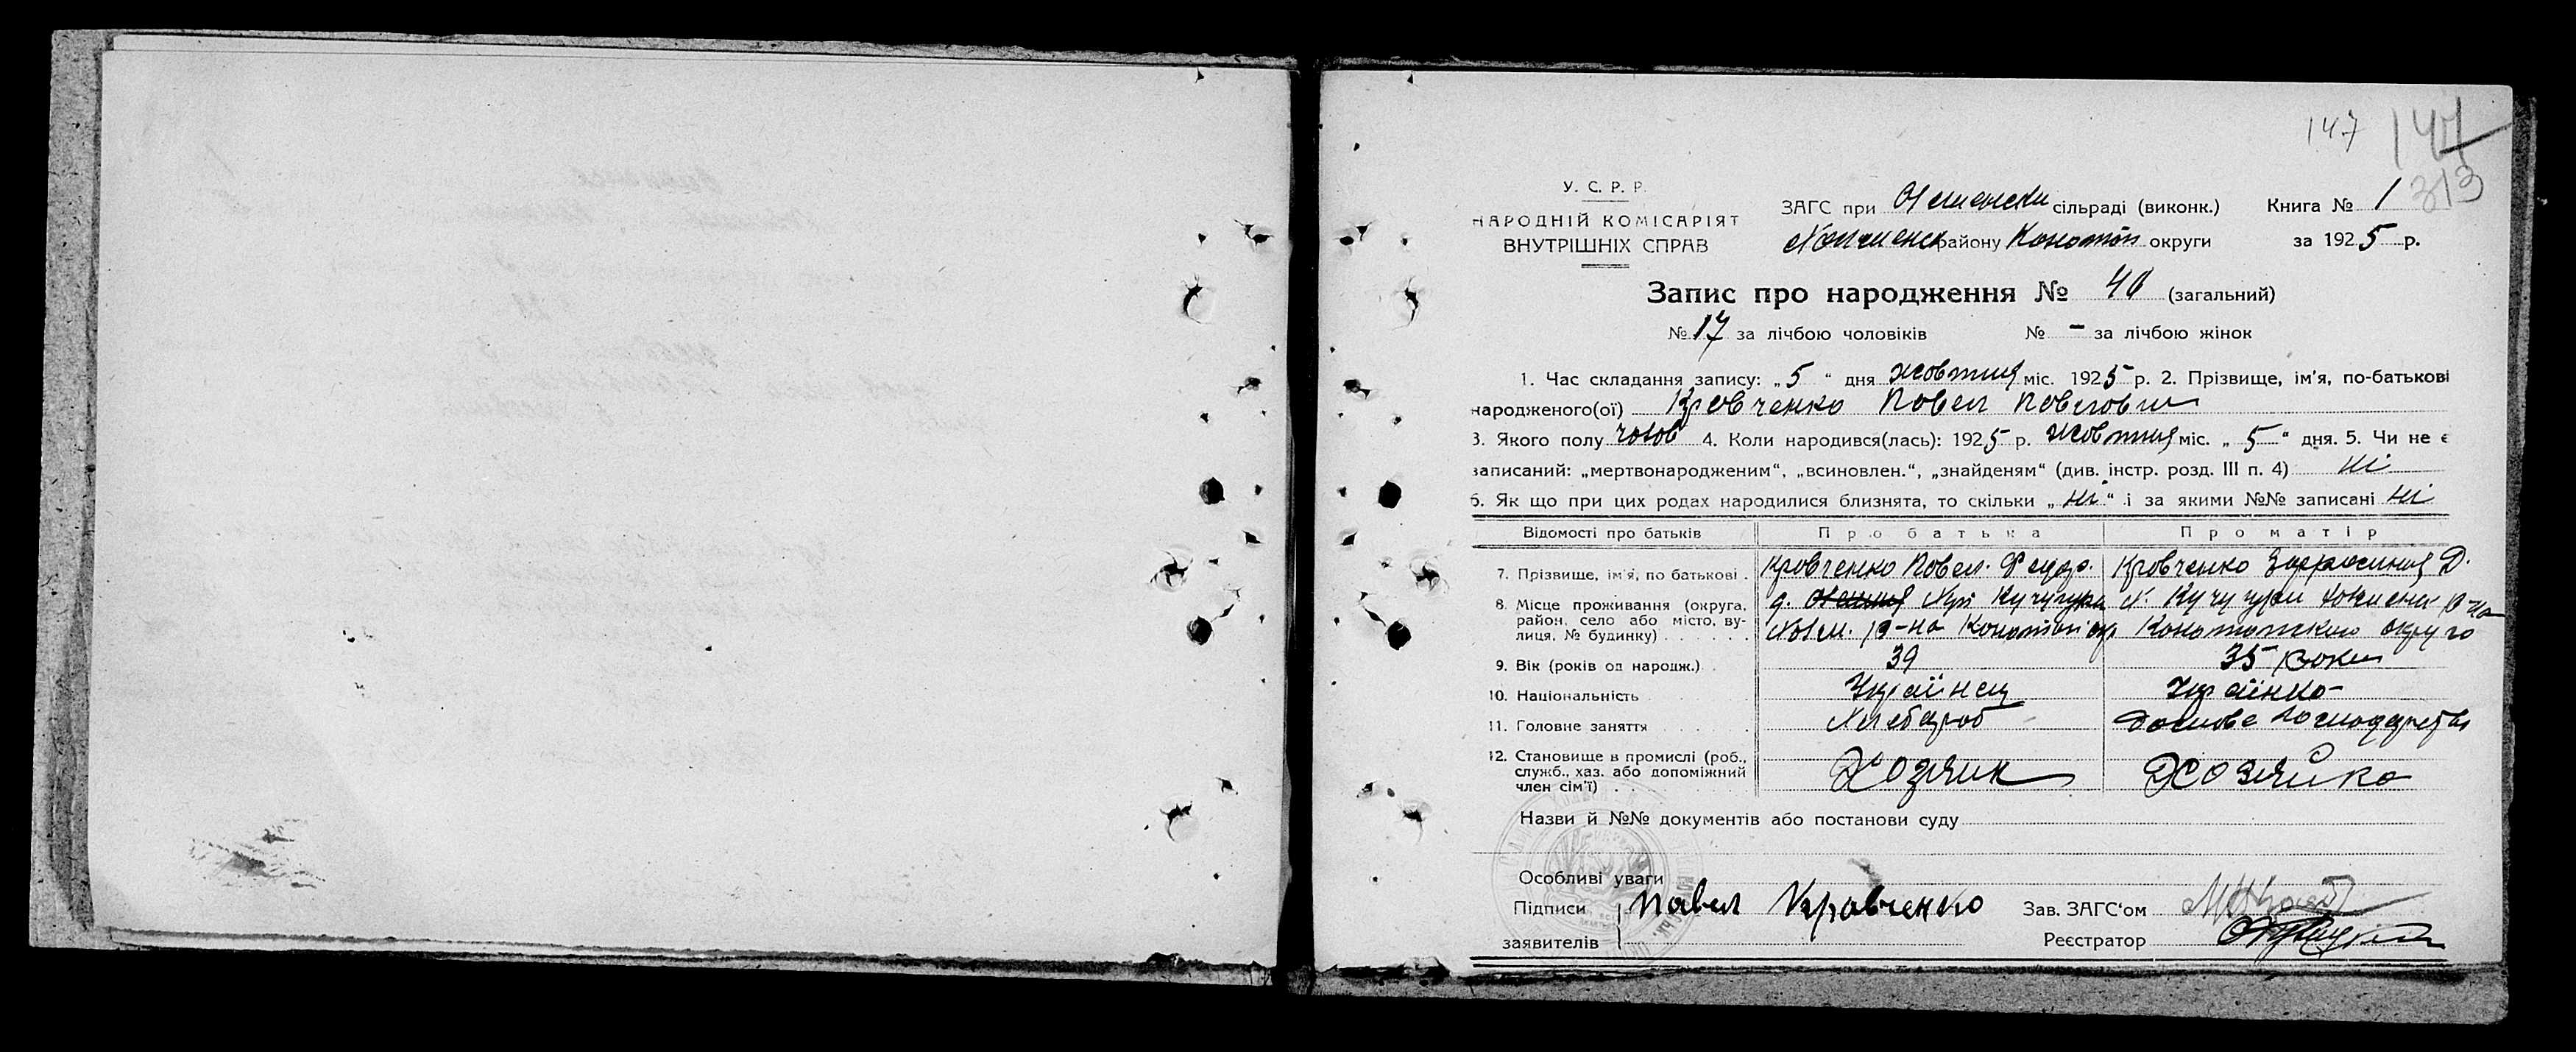 147 147
313
У. С. Р. Р.
НАРОДНІЙ КОМІСАРІЯТ
ВНУТРІШНІХ СПРАВ
ЗАГС при сільраді (виконк.) Книга № 1
району Конотоп округи за 1925 р.
Запис про народження № 40 (загальний)
№ 17 за лічбою чоловіків № - за лічбою жінок
1. Час складання запису: „5“ дня жовтня міс. 1925 р. 2. Прізвище, ім'я, по-батькові
народженого(ої) Кровченко Повел Повлович
3. Якого полу чолов 4. Коли народився(лась): 1925 р. жовтня міс. „5“ дня. 5. Чи не є
записаний: „мертвонародженим“, „всиновлен.“, „знайденям“ (див. інстр. розд. III п. 4) ні
6. Як що при цих родах народилися близнята, то скільки „ні“ і за якими №№ записані ні
Відомості про батьків Про батька Про матір
7. Прізвище, ім'я, по батькові . Кровченко Повел. Федор. Кровченко Д.
8. Місце проживання (округа, Хут Кучугури Х. Кучугури р-на
район, село або місто, ву-
лиця, № будинку) р-на Конотоп окр Конотопской округо
9. Вік (років од народж.) . 39 35 роки
10. Національність Українец Українко
11. Головне заняття Хлебороб Домове господарство
12. Становище в промислі (роб.,
служб., хаз. або допоміжний
член сім'ї) . Хозяин Хозяйко
Назви й №№ документів або постанови суду
Особливі уваги
Підписи Павел Кравченко Зав. ЗАГС'ом
заявителів Реєстратор